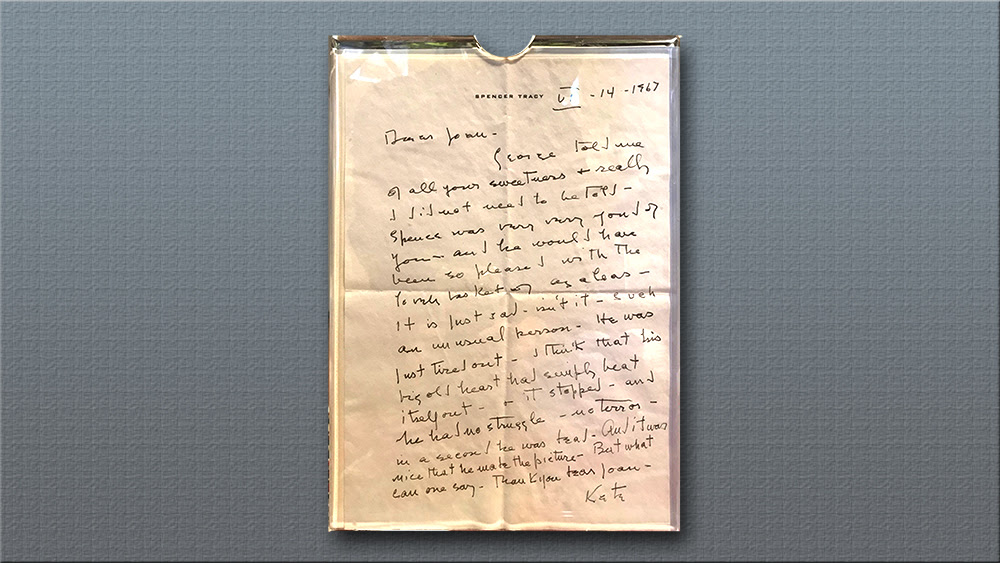 SPENCER TRACY
VI - 14 - 1967
Dear Joan -
George told me
of all your sweetness + really
I did not need to be told -
Spence was very very fond of
you - and he would have
been so pleased with the
lovely basket of azaleas -
It is just sad - isn't it - Such
an unusual person - He was
just tired out - I think that his
big old heart had simply beat
itself out - & it stopped - and
he had no struggle - no terror -
in a second he was dead - And it was
nice that he made the picture - But what
can one say - Thank you dear Joan -
Kate